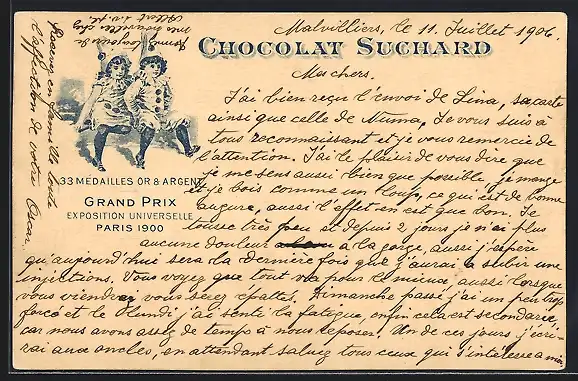 Malvilliers, le 11 Juillet 1906.
CHOCOLAT SUCHARD
Mes chers.
J'ai bien reçu l'envoi de Lina, sa carte
ainsi que celle de Numa, Je vous suis à
tous reconnaissant et je vous remercie de
l'attention. J'ai le plaisir de vous dire que
je me sens aussi bien que possible, je mange
et je bois comme un loup, ce qui est de bonne
augure, aussi l'effet en est que bon. Je
tousse très peu et depuis 2 jours je n'ai plus
aucune douleur à la gorge, aussi j'espère
qu'aujourd'hui sera la dernière fois que j'aurai à subir une
injections. Vous voyez que tout va pour le mieux, aussi lorsque
vous viendrez vous serez épatés. Dimanche passé j'ai un peu trop
forcé et le lundi j'ai senti la fatigue, enfin cela est secondaire
car nous avons assez de temps à nous reposer. Un de ces jours j'écri-
rai aux oncles, en attendant saluez tous ceux qui s'intéresse à moi
33 MÉDAILLES OR & ARGENT
GRAND PRIX
EXPOSITION UNIVERSELLE
PARIS 1900
Recevez en famille toute
l'affection de votre Oscar.
toujours de
nouvelles chez
Albert